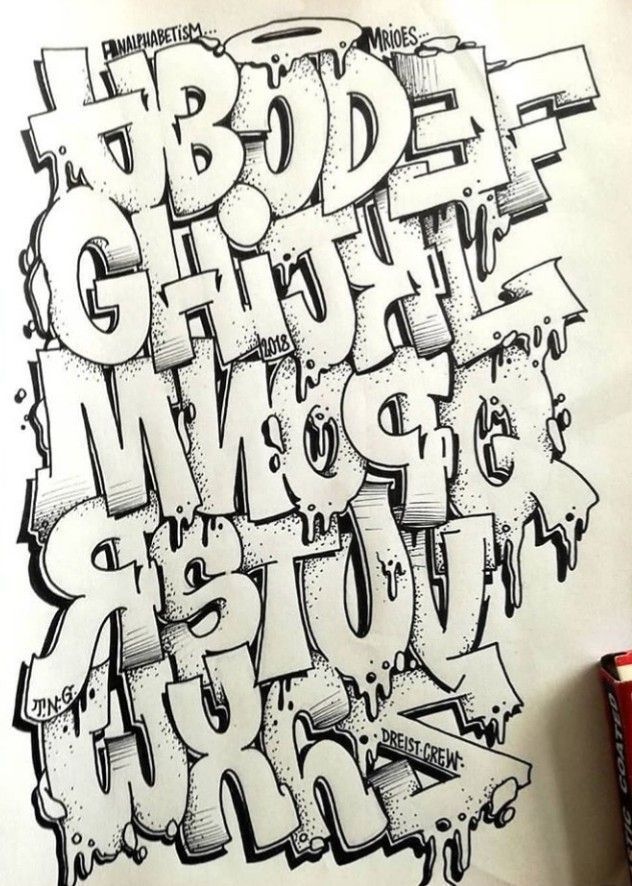 ANALPHABETISM... MRIOES...
ABCDEF
GHIJKL
2018
MNOPQ
RSTUV
T.N.G.
WXYZ
DREIST-CREW-
COATED